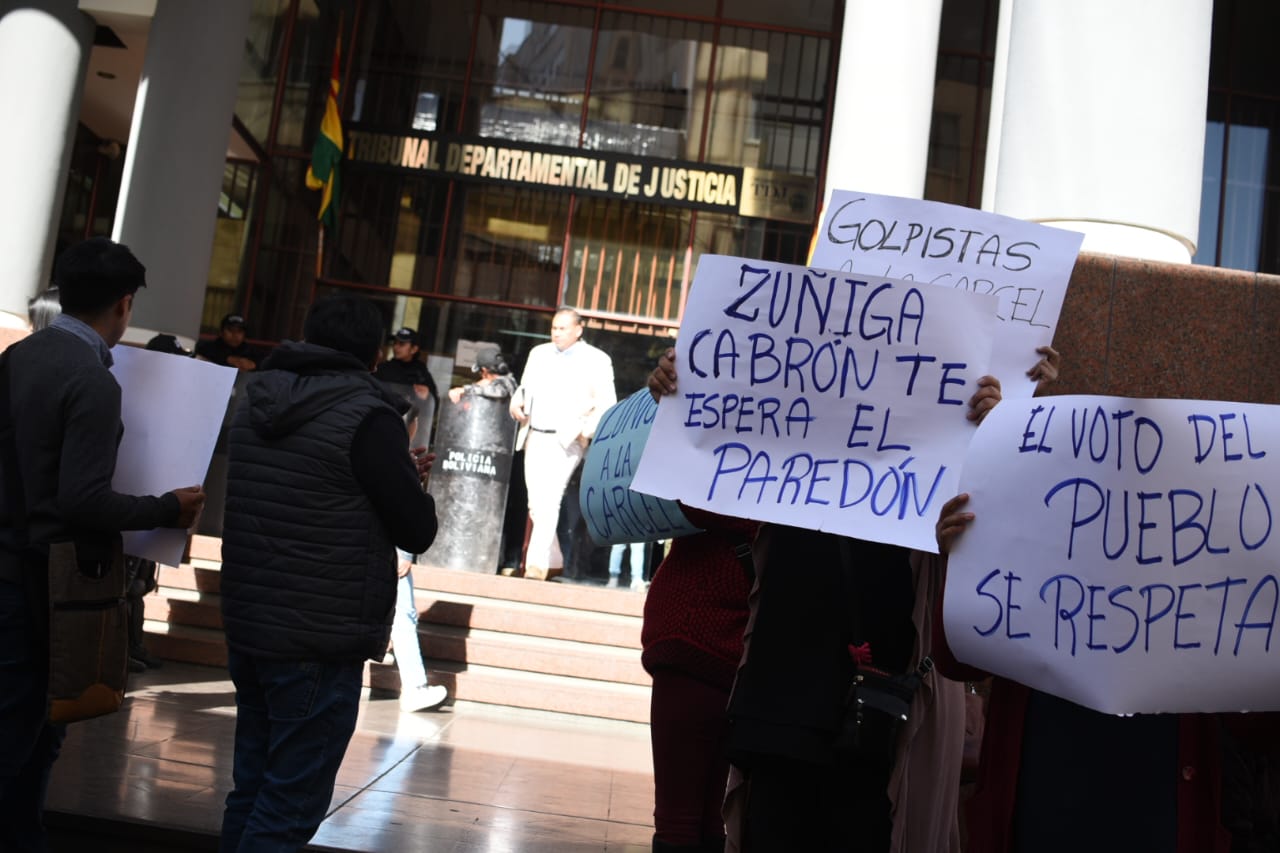 TRIBUNAL DEPARTAMENTAL DE JUSTICIA
GOLPISTAS
A LA CARCEL
ZUÑIGA
CABRÓN TE
ESPERA EL
PAREDÓN
EL VOTO DEL
PUEBLO
SE RESPETA
A LA
CARCEL
POLICIA
BOLIVIANA